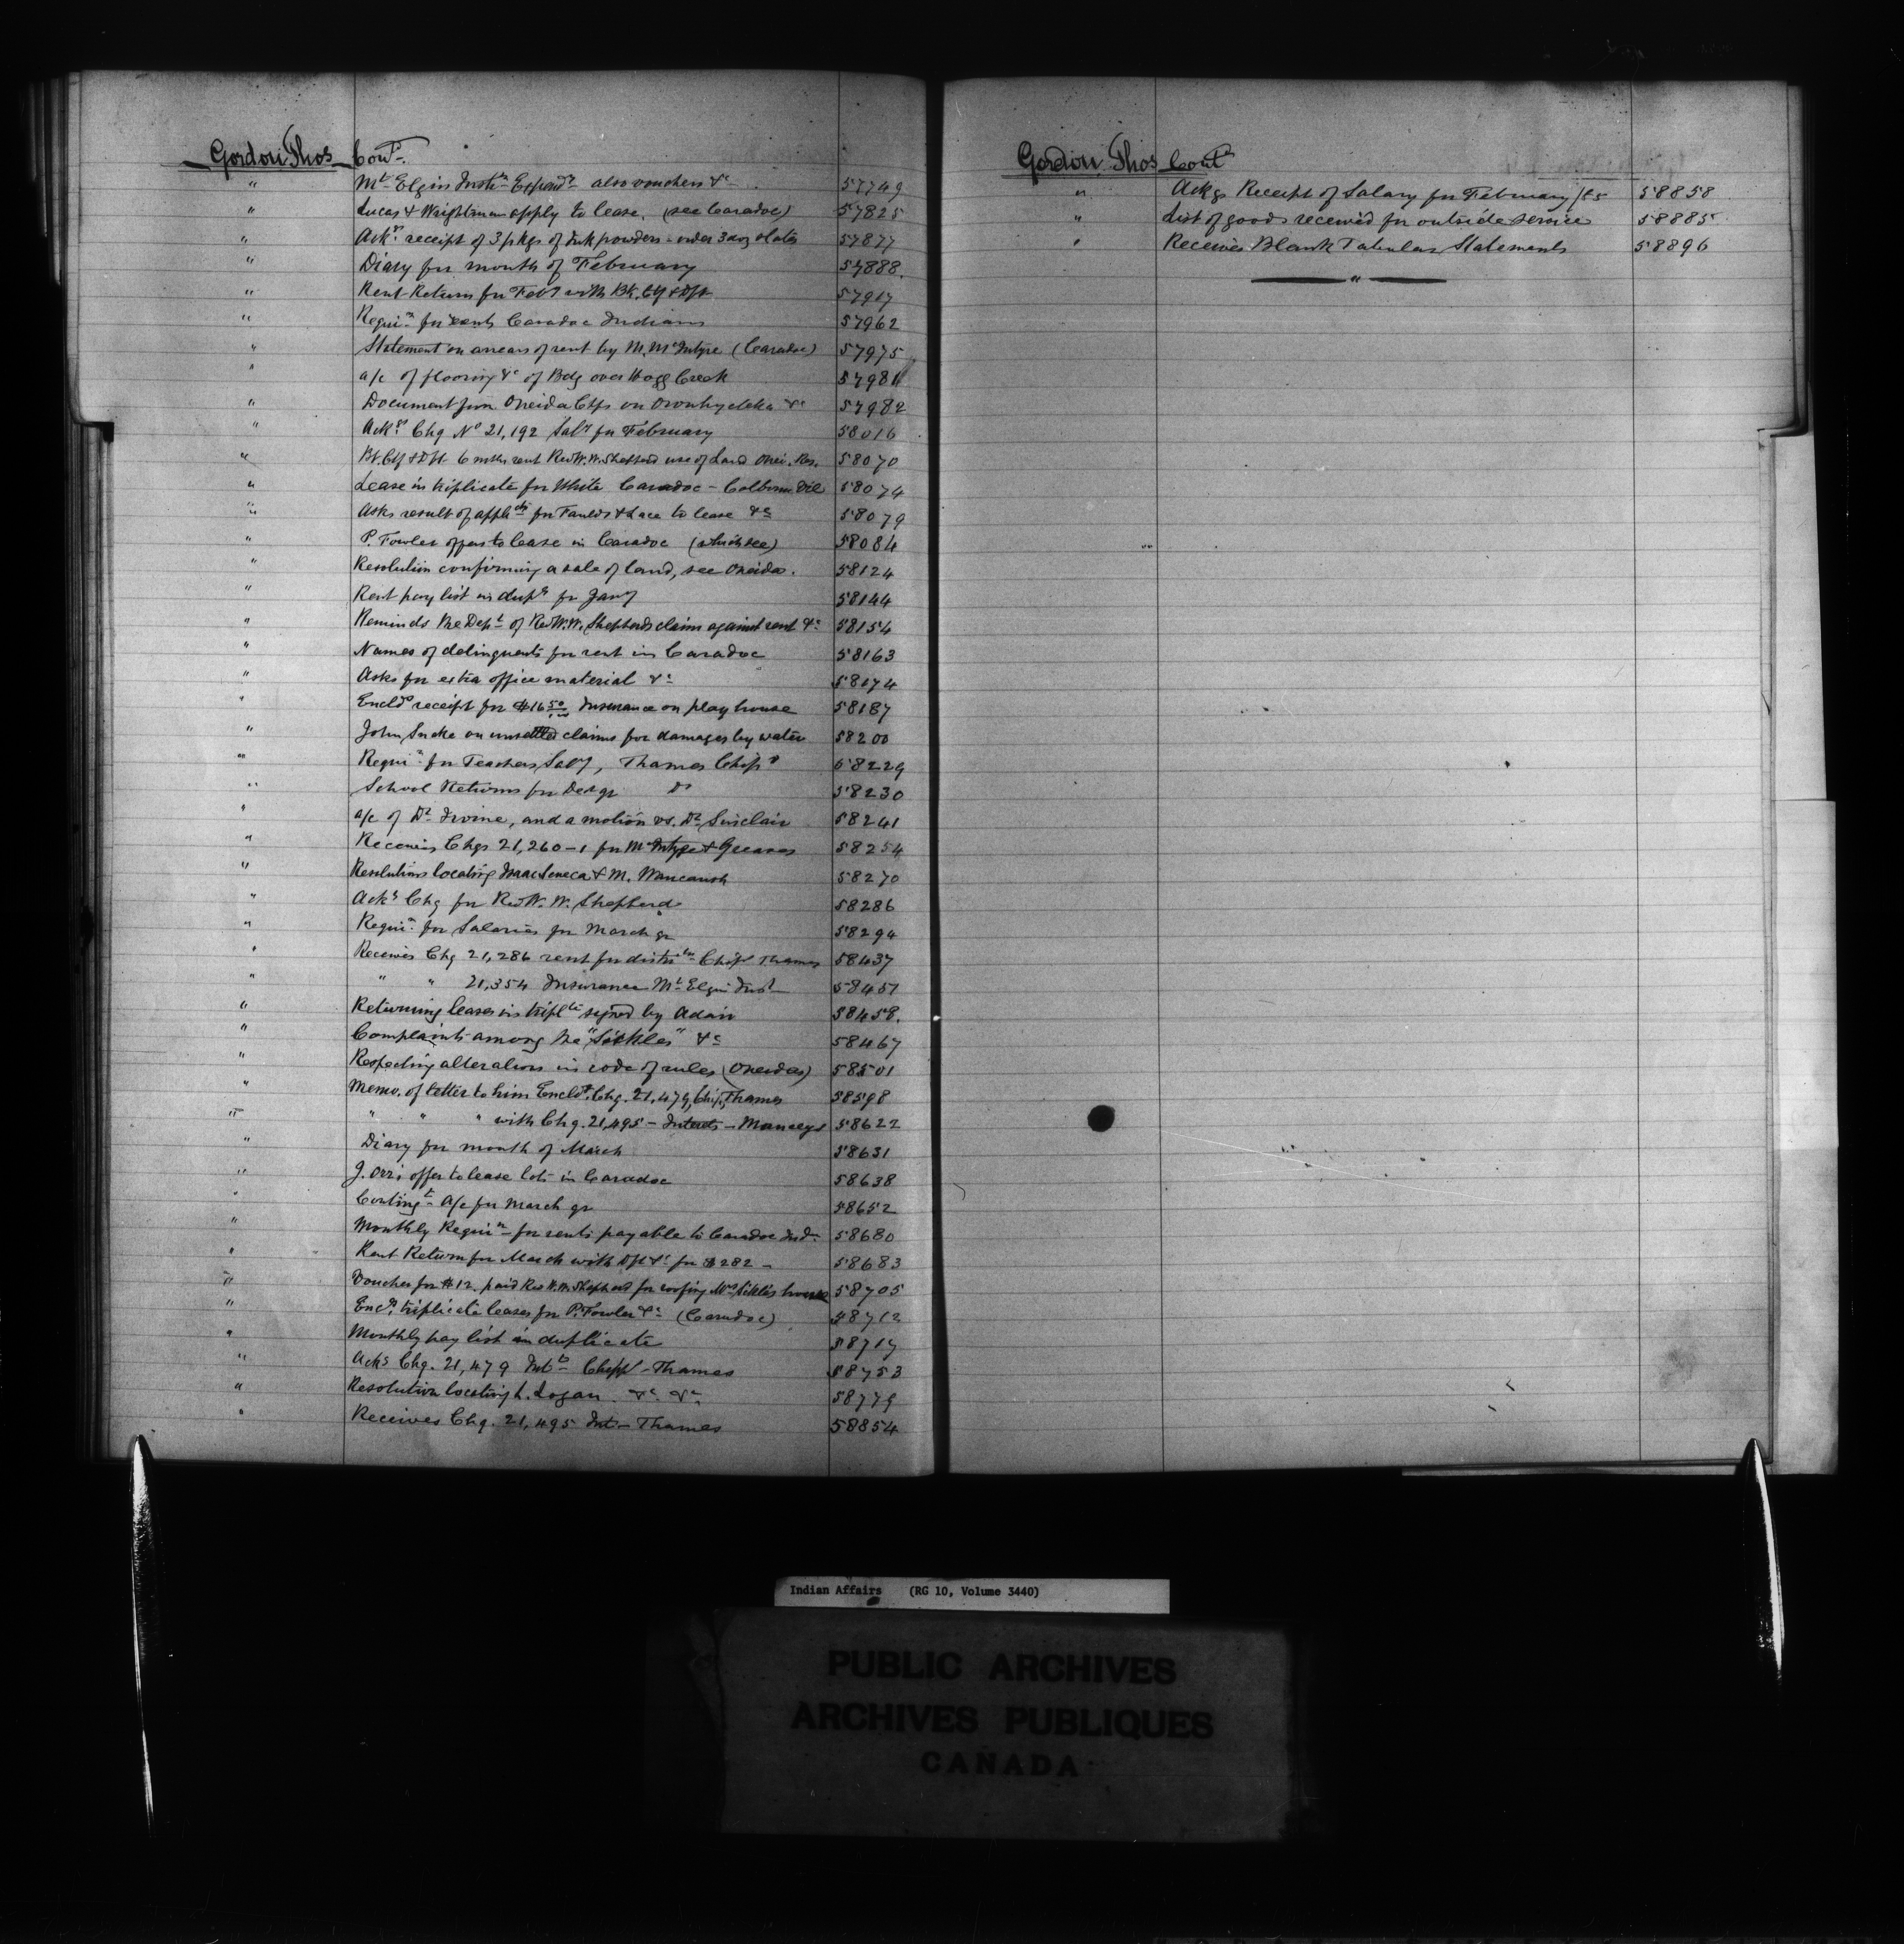 Gordon Thos Cont.
" Mt Elgin Instn Expendre also vouchers &c 57749
" Lucas & Wrightman apply to lease. (see Caradoc) 57825
" Acks. receipt of 3 pkgs of Ink powders - order 3 doz slates 57877
" Diary for month of February 57888.
" Rent Return for Feby with Bk. Ctf & Dft 57917
" Requin for rents Caradoc Indians 57962
" Statement on arrears of rent by M. McIntyre (Caradoc) 57975
" a/c of flooring &c of Bdg over Hogg Creek 57981
" Document from Oneida Chfs on Oronhyateka &c 57982
" Acks. Chq No 21,192 Saly for February 58016
" Bk. Ctf & Dft 6 mths rent Rev W. W. Shepherd use of Land Onei. Res. 58070
" Lease in triplicate for White Caradoc - Colborne Vic 58074
" Asks result of applictn for Faulds & Lace to lease &c 58079
" P. Fowler offers to lease in Caradoc (which see) 58084
" Resolution confirming a sale of land, see Oneidas. 58124
" Rent pay list in dupte for Jany 58144
" Reminds the Dept of Rev W. W. Shepherds claim against rent &c 58154
" Names of delinquents for rent in Caradoc 58163
" Asks for extra office material &c 58174
" Encld receipt for $16 50/100 Insurance on play house 58187
" John Snake on unsettled claims for damages by water 58200
" Requin for Teachers Saly, Thames Chips 58229
" School Returns for Dec qr do 58230
" a/c of Dr Irvine, and a motion vs. Dr Sinclair 58241
" Receives Chqs 21,260-1 for McIntyre & Greaves 58254
" Resolutions locating Isaac Seneca & M. Wancaush 58270
" Acks Chq for Rev W. W. Shepherd 58286
" Requin for Salaries for March qr 58294
" Receives Chq 21,286 rent for distribn Chips Thames 58437
" " " 21,354 Insurance Mt Elgin Inst 58451
" Returning leases in triplte signed by Adair 58458.
" Complaints among the "Sickles" &c 58467
" Respecting alterations in code of rules (Oneidas) 58501
" Memo. of letter to him Encldg Chq. 21,479, Chip, Thames 58598
" " " " with Chq. 21,495 - Interets - Munceys 58622
" Diary for month of March 58631
" J. Orr's offer to lease lots in Caradoc 58638
" Contingt A/c for March qr 58652
" Monthly Requin for rents payable to Caradoc Inds 58680
" Rent Return for March with Dft &c for $282 - 58683
" Voucher for $12. paid Rev W. W. Shepherd for roofing Mrs Sickles house 58705
" Encs. triplicate leases for P. Fowler &c (Caradoc) 58712
" Monthly pay list in duplicate 58717
" Acks Chq. 21,479 Intt Chipps - Thames 58753
" Resolution locating L. Logan &c &c 58779
" Receives Chq. 21,495 Int - Thames 58854
Gordon Thos Cont
" Ackgs Receipt of Salary for February /85 58858
" List of goods received for outside service 58885
" Receives Blank Tabular Statements 58896
"
Indian Affairs (RG 10, Volume 3440)
PUBLIC ARCHIVES
ARCHIVES PUBLIQUES
CANADA